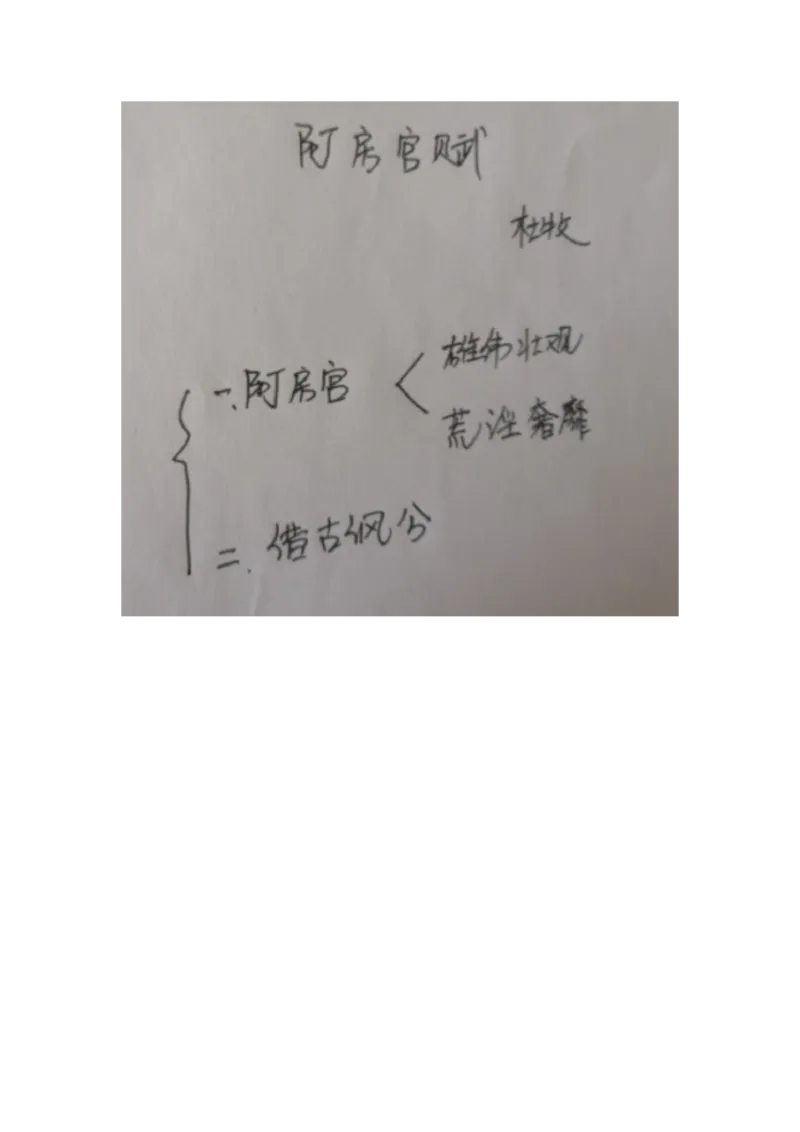 阿房宫赋
杜牧
一、阿房宫
雄伟壮观
荒淫奢靡
二、借古讽今